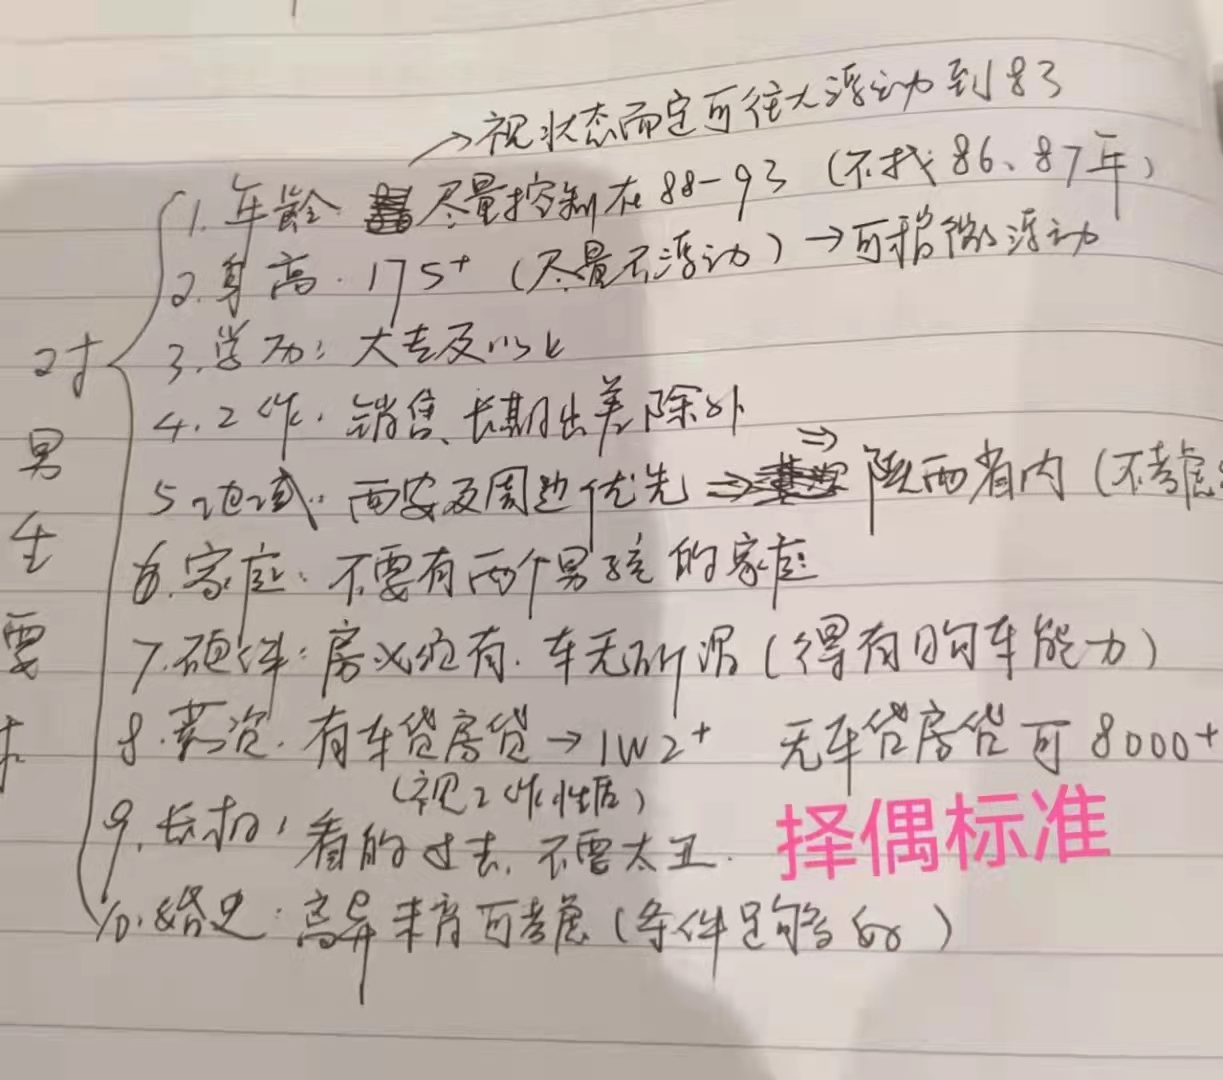 →视状态而定可往大浮动到83
对男生要求
1.年龄 尽量控制在88-93（不找86、87年）
2.身高.175+（尽量不浮动）→可稍微浮动
3.学历：大专及以上
4.工作.销售、长期出差除外
5.地域：西安及周边优先⇒ ⇒陕西省内（不考虑
6.家庭：不要有两个男孩的家庭
7.硬件：房必须有.车无所谓（得有购车能力）
8.薪资.有车贷房贷→1W2+ 无车贷房贷可8000+
（视工作性质）
9.长相：看的过去.不要太丑.
择偶标准
10.婚史：离异未育可考虑（条件足够好）